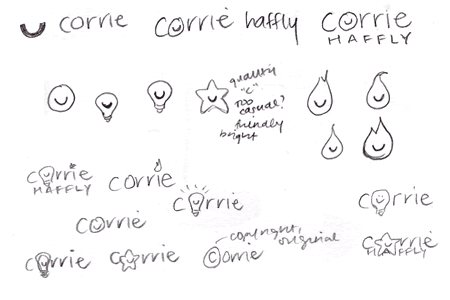 corrie
Corrie haffly
Corrie
HAFFLY
quality
"C"
too
casual?
friendly
bright
Corrie
HAFFLY
corrie
Corrie
Corrie
Corrie
Corrie
Corrie
©orrie
copyright,
original
Corrie
HAFFLY